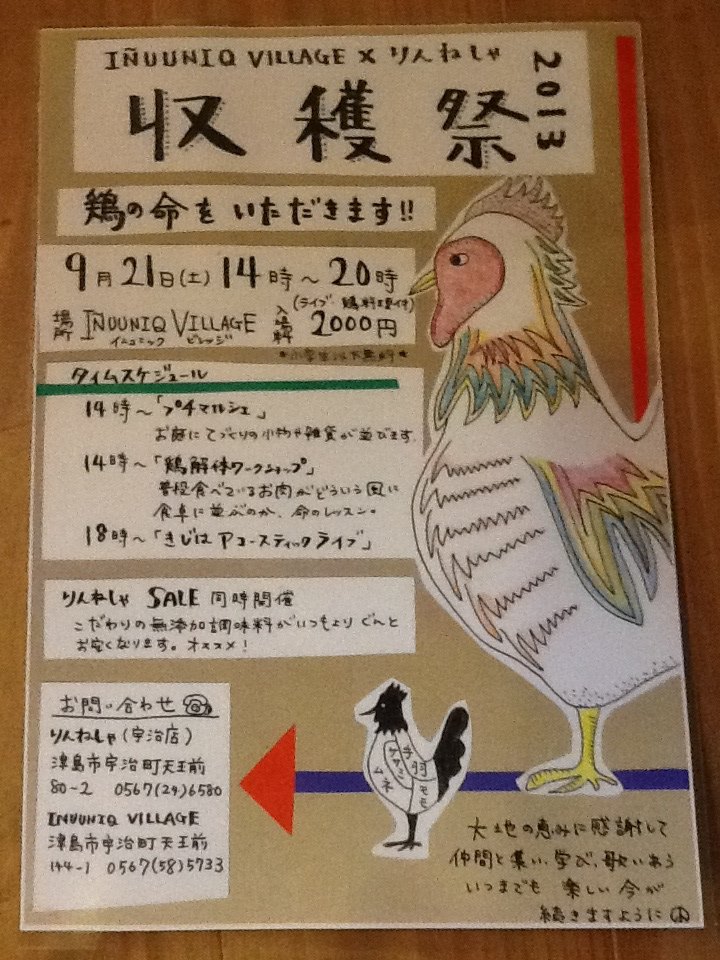 IÑUUNIQ VILLAGE × りんねしゃ
収穫祭
2013
鶏の命をいただきます!!
9月21日(土) 14時～20時
(ライブ・鶏料理付)
場所 IÑUUNIQ VILLAGE 入場料 2000円
イニュニック ビレッジ
タイムスケジュール
14時～「プチマルシェ」
お庭にてづくりの小物や雑貨が並びます
14時～「鶏解体ワークショップ」
普段食べているお肉がどういう風に
食卓に並ぶのか、命のレッスン。
18時～「きじは アコースティックライブ」
りんねしゃ SALE 同時開催
こだわりの無添加調味料がいつもより ぐんと
お安くなります。オススメ!
お問い合わせ
りんねしゃ(宇治店)
津島市宇治町天王前
80-2 0567(24)6580
INUUNIQ VILLAGE
津島市宇治町天王前
144-1 0567(58)5733
手羽
ササミ
ムネ
モモ
大地の恵みに感謝して
仲間と集い、学び、歌いあう
いつまでも 楽しい今が
続きますように